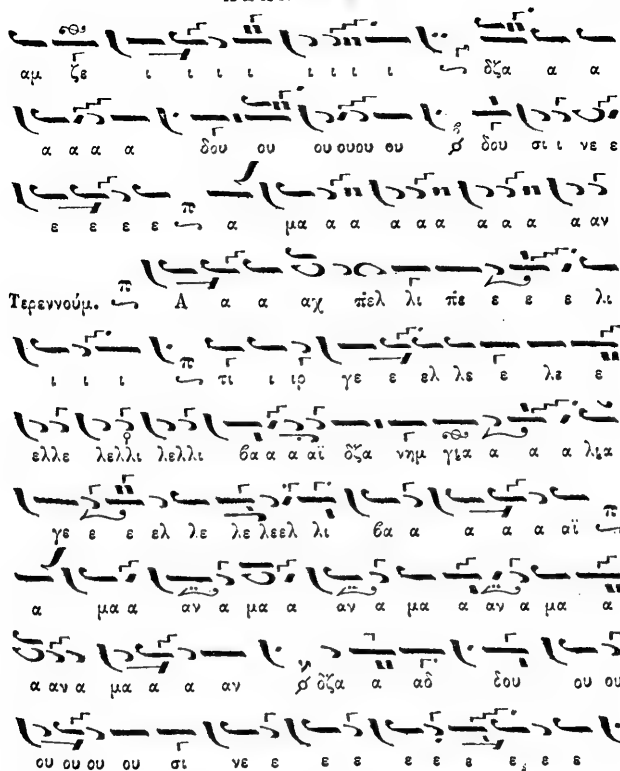 αμ ζε ι ι ι ι ι ι ι ι δζα α α
α α α α δου ου ου ουου ου δου σι ι νε ε
ε ε ε ε π α μα α α α α α α α α α αν
Τερεννούμ. π Α α α αχ πελ λι πε ε ε ε λι
ι ι ι π τι ι ιρ γε ε ελ λε ε λε ε
ελλε λελλι λελλι βα α α αϊ δζα νημ για α α α λια
γε ε ε ελ λε λε λεελ λι βα α α α α αϊ π
α μα α αν α μα α αν α μα α αν α μα α
α αν α μα α α αν δζα α αδ δου ου ου
ου ου ου ου σι νε ε ε ε ε ε ε ε ε ε